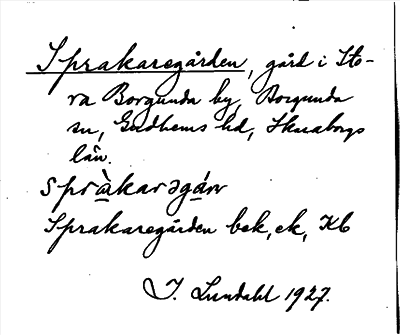 Sprakaregården, gård i Sto-
ra Borgunda by, Borgunda
sn, Gudhems hd, Skaraborgs
län.
språ̀karəgán
Sprakaregården bek, ek, Kb
I. Lundahl 1927.